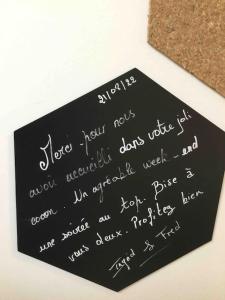 21/08/22
Merci pour nous
avoir accueilli dans votre joli
cocon. Un agréable week-end
une soirée au top. Bise à
vous deux. Profitez bien
& Fred